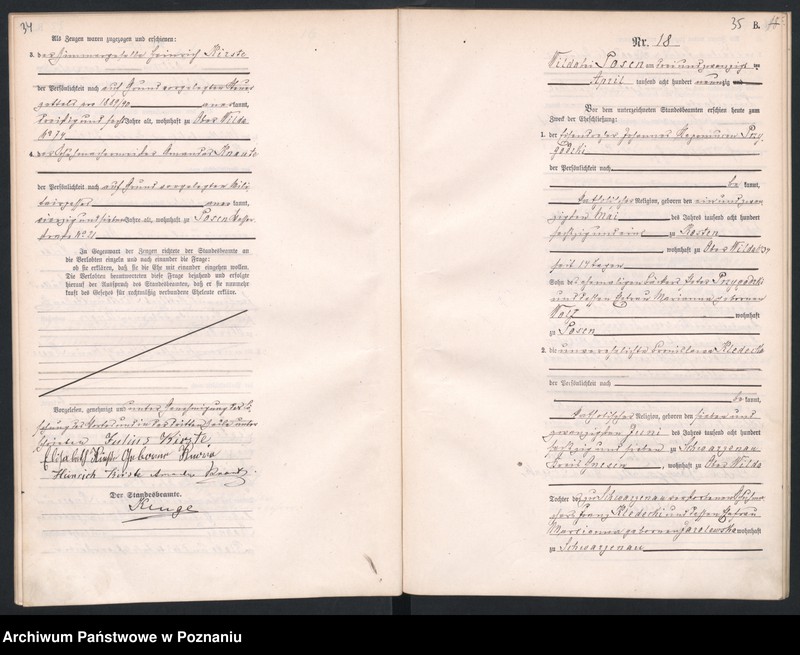 34
Als Zeugen waren zugezogen und erschienen:
3. der Zimmergeselle Heinrich Kirste
der Persönlichkeit nach auf Grund vorgelegten Steuer
zettels pro 1889/90 anerkannt,
dreißig und sechs Jahre alt, wohnhaft zu Ober Wilda
No 74
4. der Schuhmachermeister Amandus
der Persönlichkeit nach auf Grund vorgelegten Mili
tairpasses anerkannt,
vierzig und sieben Jahre alt, wohnhaft zu Posen
straße No 21
In Gegenwart der Zeugen richtete der Standesbeamte an
die Verlobten einzeln und nach einander die Frage:
ob sie erklären, daß sie die Ehe mit einander eingehen wollen.
Die Verlobten beantworteten diese Frage bejahend und erfolgte
hierauf der Ausspruch des Standesbeamten, daß er sie nunmehr
kraft des Gesetzes für rechtmäßig verbundene Eheleute erkläre.
Vorgelesen, genehmigt und unter Genehmigung der Lö
schung des Wortes und in der dritten Zeile unter
schrieben Julius Kirste
Elisabeth Kirste geborene
Heinrich Kirste
Der Standesbeamte.
Kruge
35 B.
Nr. 18
Wilda bei Posen am drei und zwanzigsten
April tausend acht hundert neunzig und
Vor dem unterzeichneten Standesbeamten erschien heute zum
Zweck der Eheschließung:
1. der Johannes Nepomucen Przy
godzki
der Persönlichkeit nach
be kannt,
katholischer Religion, geboren den ein und zwan
zigsten Mai des Jahres tausend acht hundert
sechzig und eins zu Kosten
, wohnhaft zu Ober Wilda No 34
seit 14 Tagen
Sohn des ehemaligen Bäckers Peter Przygodzki
und dessen Ehefrau Marianna geborenen
wohnhaft
zu Posen
2. die unverehelichte Pronislawa Kledecka
der Persönlichkeit nach
be kannt,
katholischer Religion, geboren den sieben und
zwanzigsten Juni des Jahres tausend acht hundert
sechzig und sieben zu Schwarzenau
Kreis Gnesen, wohnhaft zu Ober Wilda
Tochter des zu Schwarzenau verstorbenen Schuhma
chers Franz Kledecki und dessen Ehefrau
Marianna geborenen Jarolewska wohnhaft
zu Schwarzenau
Archiwum Państwowe w Poznaniu